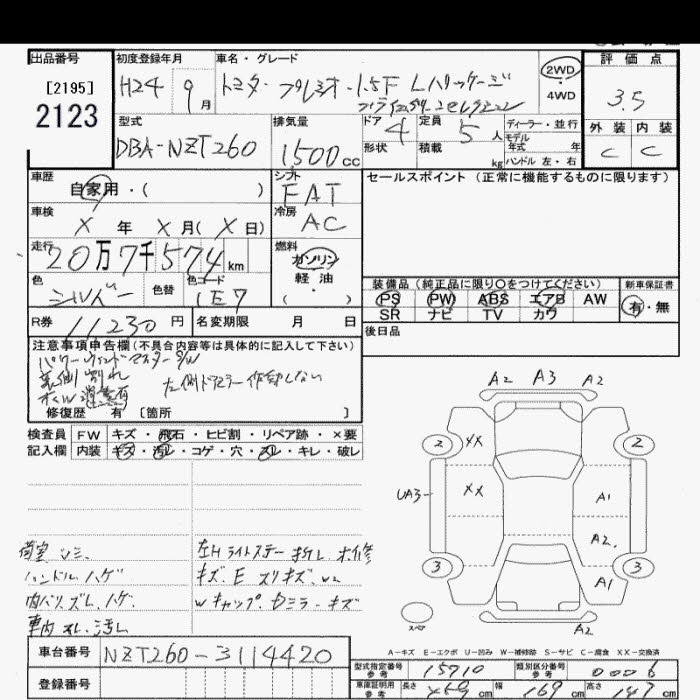 出品番号
[2195]
2123
初度登録年月
H24 9月
車名・グレード
トヨタ・プレミオ・1.5F Lパッケージ
2WD
4WD
評価点
3.5
外装 内装
C C
型式
DBA-NZT260
排気量
1500cc
ドア 4
形状
定員 5人
積載 kg
ディーラー・並行
モデル年式 年式
ハンドル 左・右
車歴
自家用・( )
シフト
FAT
セールスポイント(正常に機能するものに限ります)
車検
X年 X月(X日)
冷房
AC
走行
20万7千574km
燃料
ガソリン
軽油
( )
色
シルバー
色替
色コード
1E7
装備品(純正品に限り○をつけてください)
PS PW ABS エアB AW
SR ナビ TV カワ
新車保証書
有・無
R券 11230円
名変期限 月 日
後日品
注意事項申告欄(不具合内容等は具体的に記入して下さい)
パワーウィンドマスターS/W
左側ドアミラー作動しない
修復歴 有 [箇所 ]
検査員 FW キズ・飛石・ヒビ割・リペア跡・×要
記入欄 内装 キズ・汚レ・コゲ・穴・スレ・キレ・破レ
A2 A3 A2
2 XX 2
UA3 XX A1
A2
3 3
A1
スペア
A2
荷室 シミ
ハンドル ハゲ
内バリ スレ ハゲ
車内 スレ 汚レ
左Hライトステー 折レ 木修
キズ E スリキズ
Wキャップ ミラー キズ
A-キズ E-エクボ U-凹み W-補修跡 S-サビ C-腐食 XX-交換済
車台番号 NZT260-3114420
登録番号
型式指定番号 参考 15710
類別区分番号 参考 0006
車庫証明用 参考 長さ 459cm 幅 169cm 高さ 147cm